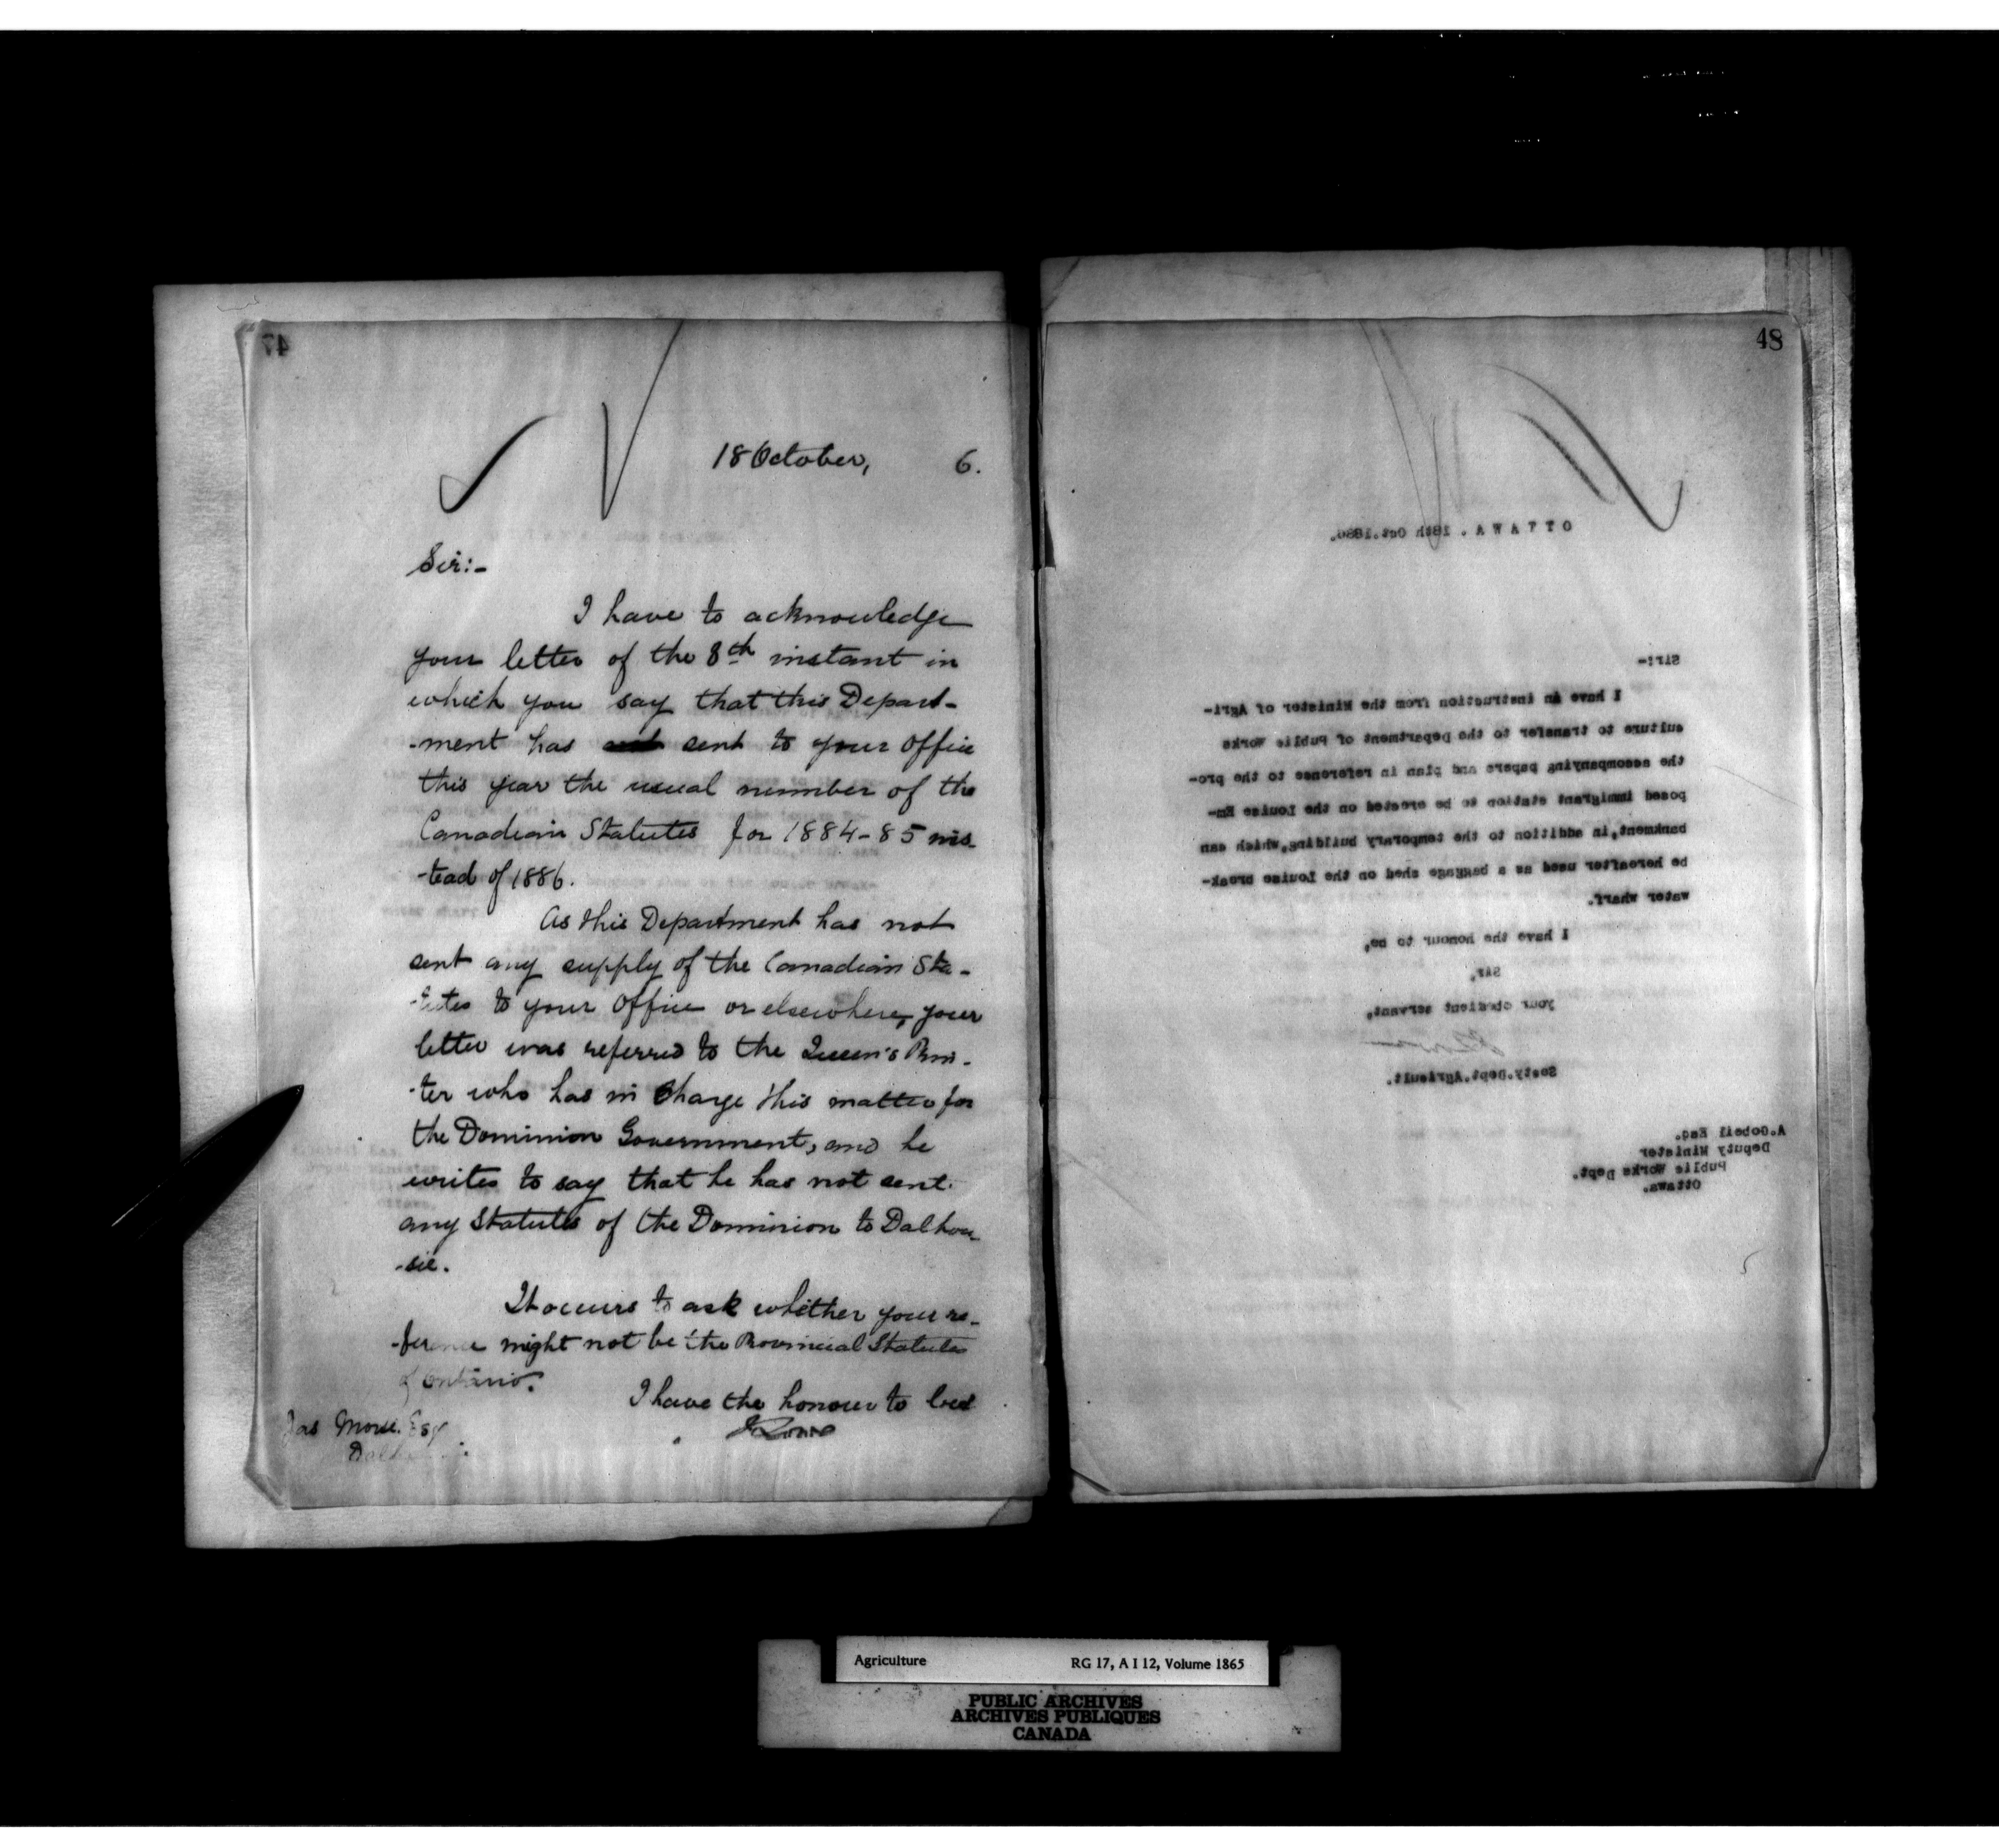 47
18 October, 6.
Sir:-
I have to acknowledge
your letter of the 8th instant in
which you say that this Depart-
-ment has sent to your Office
this year the usual number of the
Canadian Statutes for 1884-85 ins-
-tead of 1886.
As this Department has not
sent any supply of the Canadian Sta-
-tutes to your Office or elsewhere, your
letter was referred to the Queen's Prin-
-ter who has in Charge this matter for
the Dominion Government, and he
writes to say that he has not sent
any Statutes of the Dominion to Dalhou-
-sie.
It occurs to ask whether your re-
-ference might not be the Provincial Statutes
of Ontario.
I have the honour to be
J Lowe
Jas Esq
48
OTTAWA. 18th Oct.1886.
Sir:-
I have an instruction from the Minister of Agri-
culture to transfer to the Department of Public Works
the accompanying papers and plan in reference to the pro-
posed immigrant station to be erected on the Louise Em-
bankment, in addition to the temporary building, which can
be hereafter used as a baggage shed on the Louise break-
water wharf.
I have the honour to be,
Sir,
your obedient servant,
Secty.Dept.Agricult.
A.Gobeil Esq.
Deputy Minister
Public Works Dept.
Ottawa.
Agriculture RG 17, A I 12, Volume 1865
PUBLIC ARCHIVES
ARCHIVES PUBLIQUES
CANADA